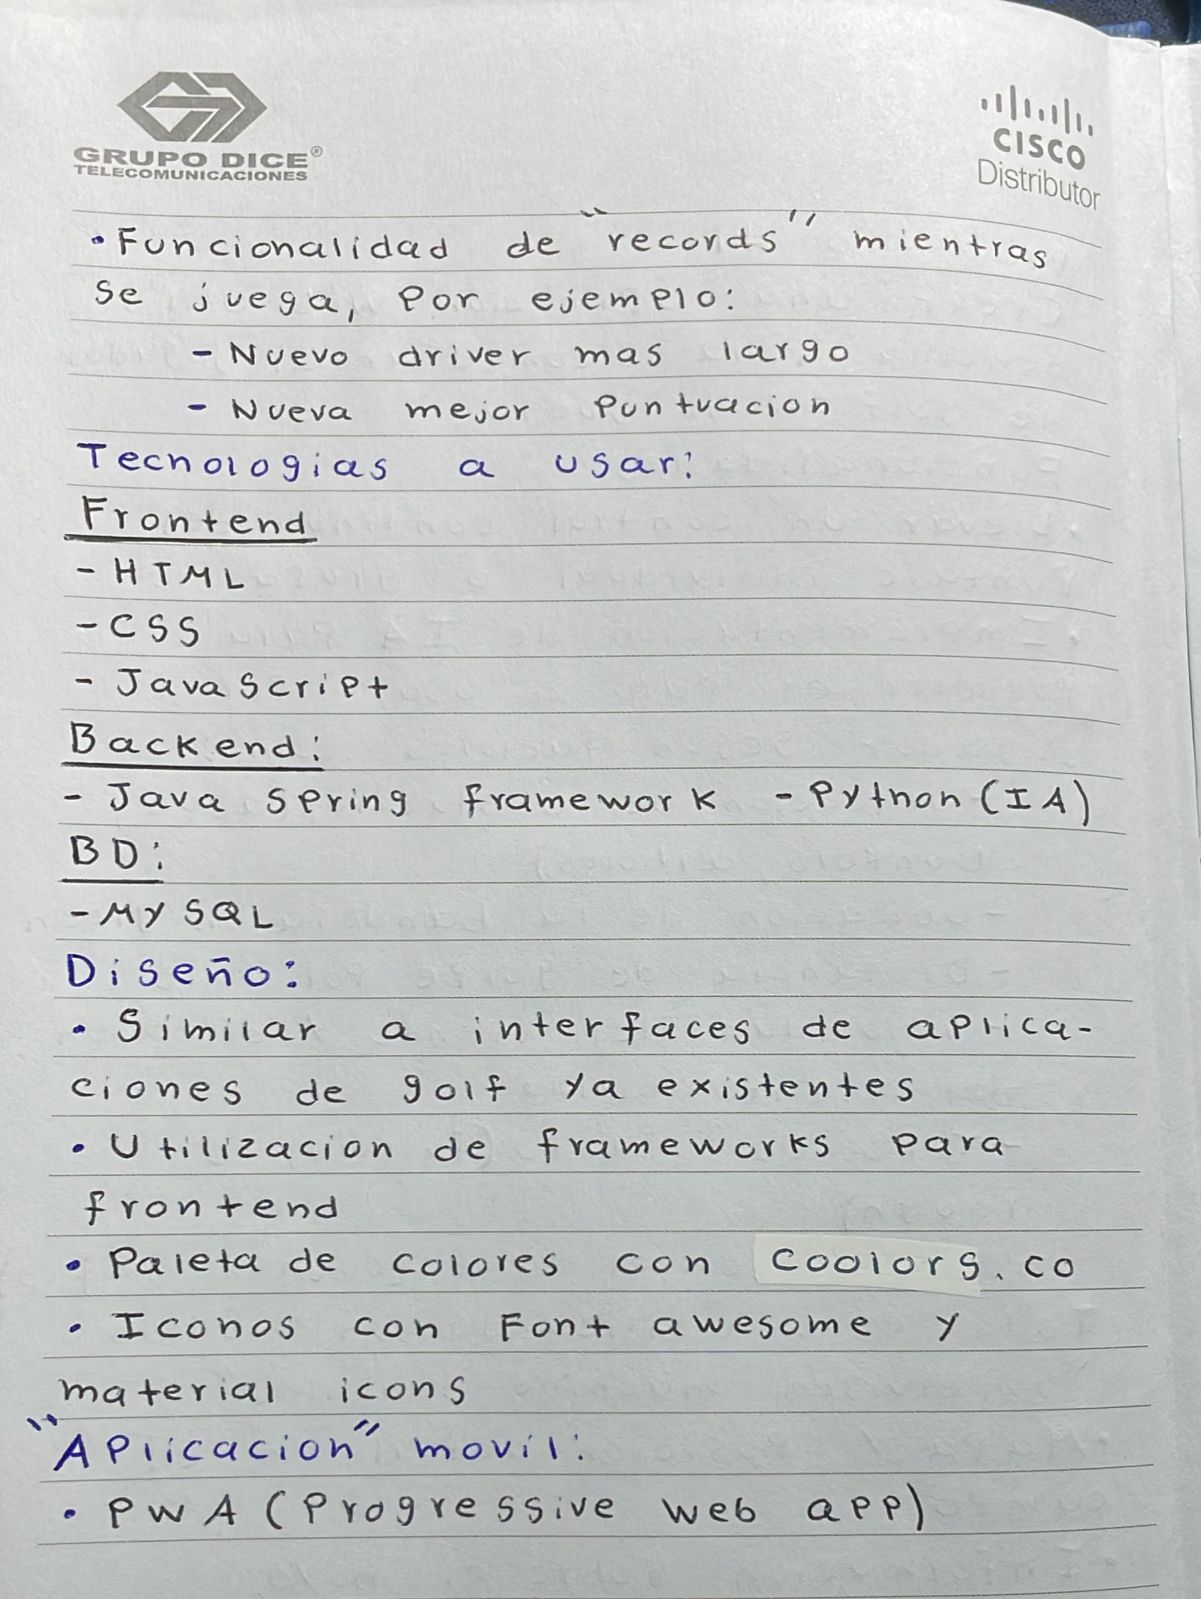 GRUPO DICE®
TELECOMUNICACIONES
CISCO
Distributor
• Funcionalidad de "records" mientras
se juega, por ejemplo:
- Nuevo driver mas largo
- Nueva mejor puntuacion
Tecnologias a usar:
Frontend
- HTML
- CSS
- JavaScript
Backend:
- Java Spring framework - Python (IA)
BD:
- MySQL
Diseño:
• Similar a interfaces de aplica-
ciones de golf ya existentes
• Utilizacion de frameworks para
frontend
• Paleta de colores con coolors.co
• Iconos con Font awesome y
material icons
"Aplicacion" movil:
• PWA (Progressive web app)